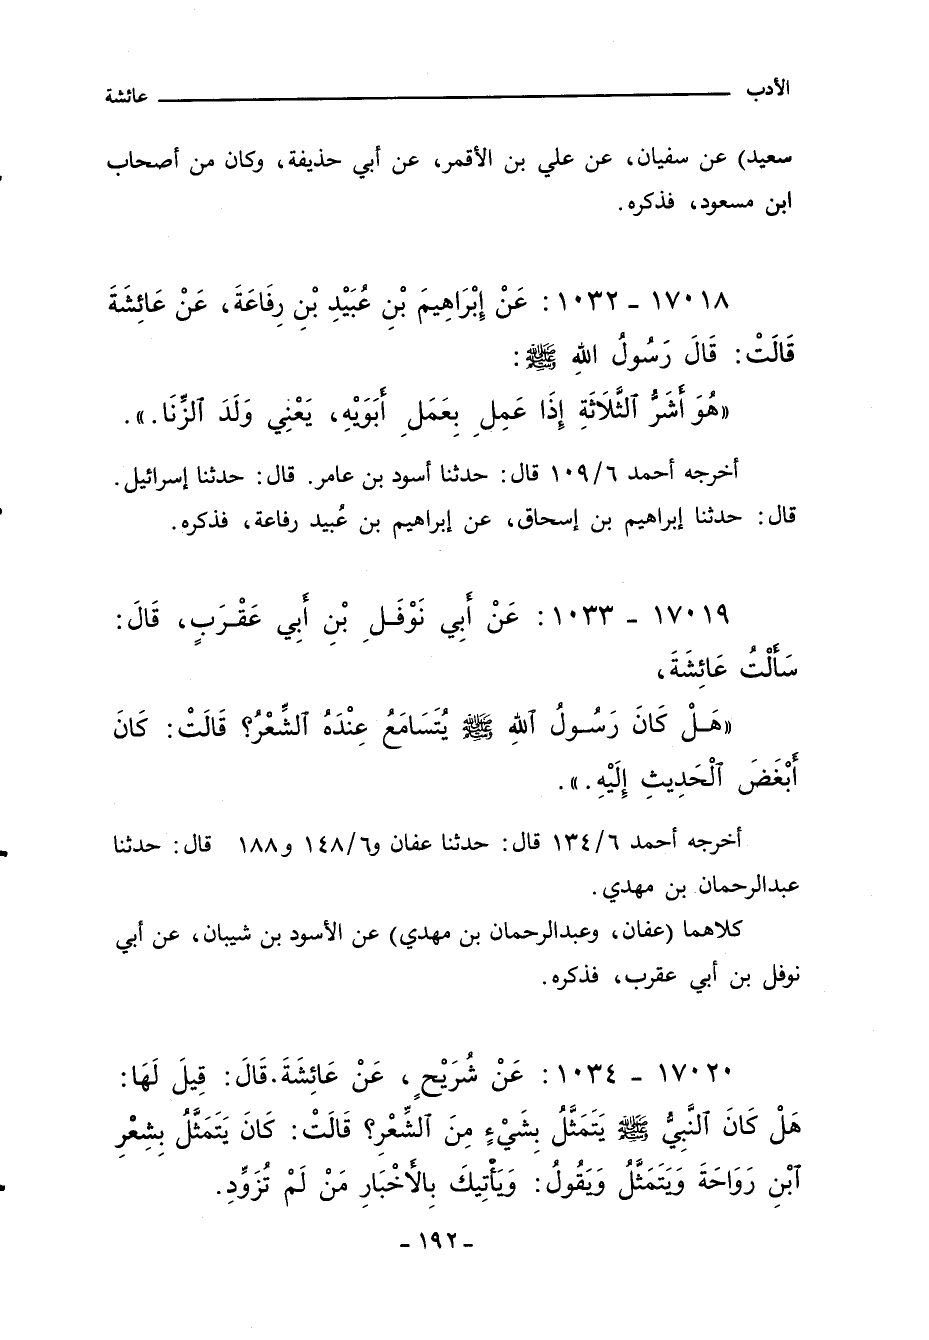 الأدب ــــــــــــ عائشة
سعيد) عن سفيان، عن علي بن الأقمر، عن أبي حذيفة، وكان من أصحاب
ابن مسعود، فذكره.
١٧٠١٨ - ١٠٣٢: عَنْ إِبْرَاهِيمَ بْنِ عُبَيْدِ بْنِ رِفَاعَةَ، عَنْ عَائِشَةَ
قَالَتْ: قَالَ رَسُولُ اللهِ ﷺ:
«هُوَ أَشَرُّ ٱلثَّلَاثَةِ إِذَا عَمِلَ بِعَمَلِ أَبَوَيْهِ، يَعْنِي وَلَدَ ٱلزِّنَا.».
أخرجه أحمد ١٠٩/٦ قال: حدثنا أسود بن عامر. قال: حدثنا إسرائيل.
قال: حدثنا إبراهيم بن إسحاق، عن إبراهيم بن عُبيد رفاعة، فذكره.
١٧٠١٩ - ١٠٣٣: عَنْ أَبِي نَوْفَلِ بْنِ أَبِي عَقْرَبٍ، قَالَ:
سَأَلْتُ عَائِشَةَ،
«هَلْ كَانَ رَسُولُ ٱللهِ ﷺ يُتَسَامَعُ عِنْدَهُ ٱلشِّعْرُ؟ قَالَتْ: كَانَ
أَبْغَضَ ٱلْحَدِيثِ إِلَيْهِ.».
أخرجه أحمد ١٣٤/٦ قال: حدثنا عفان و١٤٨/٦ و١٨٨ قال: حدثنا
عبدالرحمان بن مهدي.
كلاهما (عفان، وعبدالرحمان بن مهدي) عن الأسود بن شيبان، عن أبي
نوفل بن أبي عقرب، فذكره.
١٧٠٢٠ - ١٠٣٤: عَنْ شُرَيْحٍ، عَنْ عَائِشَةَ.قَالَ: قِيلَ لَهَا:
هَلْ كَانَ ٱلنَّبِيُّ ﷺ يَتَمَثَّلُ بِشَيْءٍ مِنَ ٱلشِّعْرِ؟ قَالَتْ: كَانَ يَتَمَثَّلُ بِشِعْرِ
ٱبْنِ رَوَاحَةَ وَيَتَمَثَّلُ وَيَقُولُ: وَيَأْتِيكَ بِالْأَخْبَارِ مَنْ لَمْ تُزَوِّدِ.
- ١٩٢ -